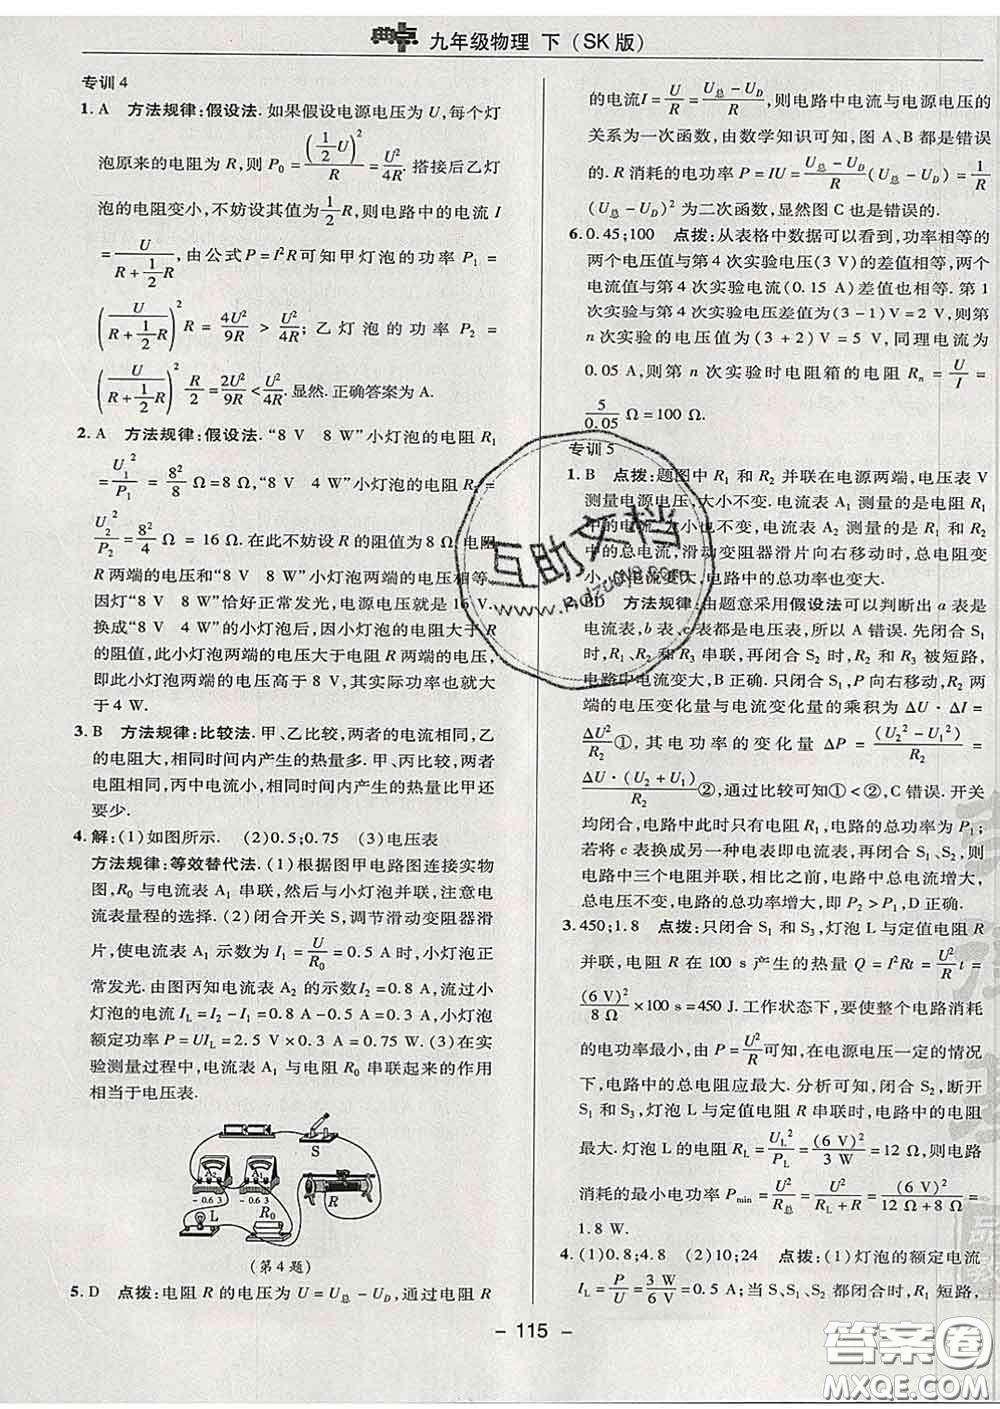 典点 九年级物理 下（SK版）
专训4
1. A 方法规律:假设法. 如果假设电源电压为 U,每个灯
泡原来的电阻为 R,则 P₀ = (½U)²/R = U²/4R. 搭接后乙灯
泡的电阻变小,不妨设其值为 ½R,则电路中的电流 I
= U/(R + ½R),由公式 P = I²R 可知甲灯泡的功率 P₁ =
(U/(R + ½R))² R = 4U²/9R > U²/4R;乙灯泡的功率 P₂ =
(U/(R + ½R))² R/2 = 2U²/9R < U²/4R. 显然. 正确答案为 A.
2. A 方法规律:假设法. “8 V 8 W”小灯泡的电阻 R₁
= U₁²/P₁ = 8²/8 Ω = 8 Ω,“8 V 4 W”小灯泡的电阻 R₂ =
U₂²/P₂ = 8²/4 Ω = 16 Ω. 在此不妨设 R 的阻值为 8 Ω,电阻
R 两端的电压和“8 V 8 W”小灯泡两端的电压相等,
因灯“8 V 8 W”恰好正常发光,电源电压就是 16 V.
换成“8 V 4 W”的小灯泡后,因小灯泡的电阻大于 R
的阻值,此小灯泡两端的电压大于电阻 R 两端的电压,
即此小灯泡两端的电压高于 8 V,其实际功率也就大
于 4 W.
3. B 方法规律:比较法. 甲、乙比较,两者的电流相同,乙
的电阻大,相同时间内产生的热量多. 甲、丙比较,两者
电阻相同,丙中电流小,相同时间内产生的热量比甲还
要少.
4. 解:(1)如图所示. (2)0.5;0.75 (3)电压表
方法规律:等效替代法. (1)根据图甲电路图连接实物
图,R₀ 与电流表 A₁ 串联,然后与小灯泡并联,注意电
流表量程的选择. (2)闭合开关 S,调节滑动变阻器滑
片,使电流表 A₁ 示数为 I₁ = U/R₀ = 0.5 A 时,小灯泡正
常发光. 由图丙知电流表 A₂ 的示数 I₂ = 0.8 A,流过小
灯泡的电流 I_L = I₂ − I₁ = 0.8 A − 0.5 A = 0.3 A,小灯泡
额定功率 P = UI_L = 2.5 V × 0.3 A = 0.75 W. (3)在实
验测量过程中,电流表 A₁ 与电阻 R₀ 串联起来的作用
相当于电压表.
S
A₂ A₁
- 0.6 3 - 0.6 3
R
L R₀
(第4题)
5. D 点拨:电阻 R 的电压为 U = U总 − U_D,通过电阻 R
的电流 I = U/R = (U总 − U_D)/R,则电路中电流与电源电压的
关系为一次函数,由数学知识可知,图 A、B 都是错误
的. R 消耗的电功率 P = IU = (U总 − U_D)/R (U总 − U_D) = 1/R
(U总 − U_D)² 为二次函数,显然图 C 也是错误的.
6. 0.45;100 点拨:从表格中数据可以看到,功率相等的
两个电压值与第 4 次实验电压(3 V)的差值相等,两个
电流值与第 4 次实验电流(0.15 A)差值也相等. 第 1
次实验与第 4 次实验电压差值为(3 − 1) V = 2 V,则第
n 次实验的电压值为(3 + 2) V = 5 V,同理电流为
0.05 A,则第 n 次实验时电阻箱的电阻 Rₙ = U/I =
5/0.05 Ω = 100 Ω.
专训5
1. B 点拨:题图中 R₁ 和 R₂ 并联在电源两端,电压表 V
测量电源电压,大小不变. 电流表 A₁ 测量的是电阻 R₁
中的电流,大小也不变,电流表 A 测量的是 R₁ 和 R₂
中的总电流,滑动变阻器滑片向右移动时,总电阻变
小,电流变大,电路中的总功率也变大.
BD 方法规律:由题意采用假设法可以判断出 a 表是
电流表,b 表、c 表都是电压表,所以 A 错误. 先闭合 S₁
时,R₁、R₂、R₃ 串联,再闭合 S₂ 时,R₁ 和 R₃ 被短路,
电路中电流变大,B 正确. 只闭合 S₁ 过程中,R₂ 两
端的电压变化量与电流变化量的乘积为 ΔU · ΔI =
ΔU²/R₂①,其电功率的变化量 ΔP = (U₂² − U₁²)/R₂ =
ΔU · (U₂ + U₁)/R₂②,通过比较可知①<②,C 错误. 开关
均闭合,电路中此时只有电阻 R₂,电路的总功率为 P₁;
若将 c 表换成另一种电表即电流表,再闭合 S₁、S₂,
电路中三个电阻并联,相比之前电路中总电流增大,
总电压不变,电路的总功率增大,即 P₂ > P₁,D 正确.
3. 450;1.8 点拨:只闭合 S₁ 和 S₃,灯泡 L 与定值电阻 R
并联,电阻 R 在 100 s 产生的热量 Q = I²Rt = U²/R t =
(6 V)²/8 Ω × 100 s = 450 J. 工作状态下,要使整个电路消耗
的电功率最小,由 P = U²/R 可知,在电源电压一定的情况
下,电路中的总电阻应最大. 分析可知,闭合 S₂,断开
S₁ 和 S₃,灯泡 L 与定值电阻 R 串联时,电路中的电阻
最大. 灯泡 L 的电阻 R_L = U_L²/P_L = (6 V)²/3 W = 12 Ω,则电路
消耗的最小电功率 Pmin = U²/R总 = U²/(R_L + R) = (6 V)²/(12 Ω + 8 Ω) =
1.8 W.
4. (1)0.8;4.8 (2)10;24 点拨:(1)灯泡的额定电流
I_L = P/U = 3 W/6 V = 0.5 A;当 S、S₁、S₂ 都闭合时,R₁ 短路,
- 115 -
互助文档
答案圈
MXQE.COM